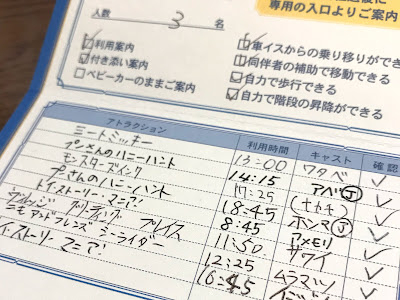 専用の入口よりご案内
人数 3 名
利用案内
付き添い案内
ベビーカーのままご案内
車イスからの乗り移りができる
同伴者の補助で移動できる
自力で歩行できる
自力で階段の昇降ができる
アトラクション 利用時間 キャスト 確認
ミートミッキー 13:00 ワタベ
プーさんのハニーハント 14:15 アベJ
モンスターズインク 17:25 (ナカチ)
プーさんハニーハント 18:45 ホンマJ
トイ・ストーリーマニア! 8:45 アメモリ
ヴィレッジ グリーティング プレイス 11:50 サワイ
ニモ アンド フレンズ シーライダー 12:25 ムラマツ
トイ・ストーリーマニア! 16:45